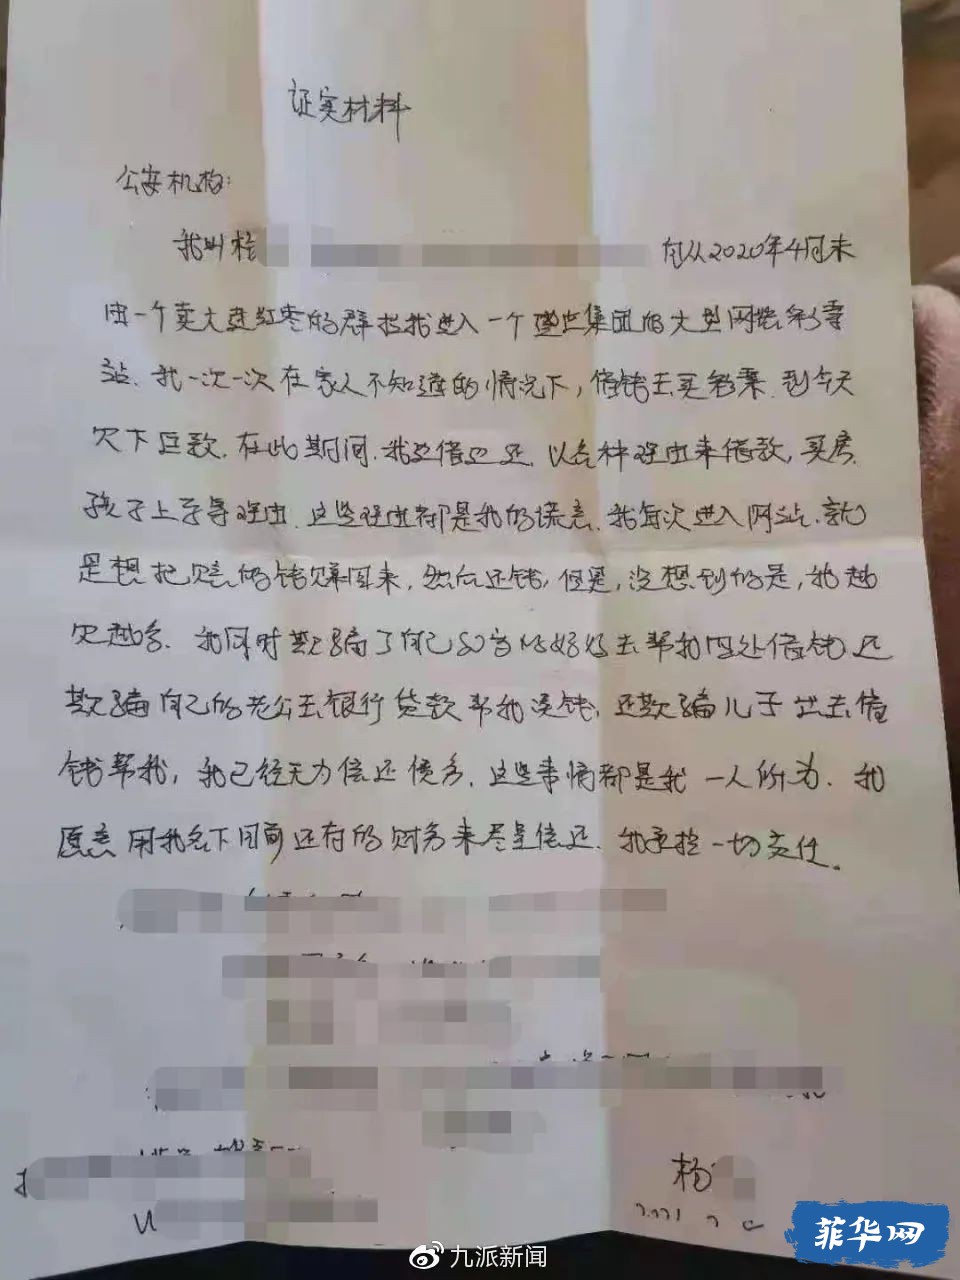 证实材料
公安机构:
我叫杨 自从2020年4月末
由一个卖大连红枣的群拉我进入一个 集团的大型网络彩票
站.我一次一次在家人不知道的情况下,借钱去买彩票.到今天
欠下巨款.在此期间.我边借边还.以各种理由来借款,买房.
孩子上学等理由.这些理由都是我的谎言.我每次进入网站.就
是想把 的钱赚回来,然后还钱,但是,没想到的是,我越
欠越多.我同时欺骗了自己80岁 妈妈去帮我四处借钱还
欺骗自己的老公去银行贷款帮我 钱,还欺骗儿子出去借
钱帮我,我已经无力偿还债务.这些事情都是我一人所为.我
愿意用我名下目前还存的财务来尽量偿还.我承担一切责任。
杨
九派新闻
菲华网